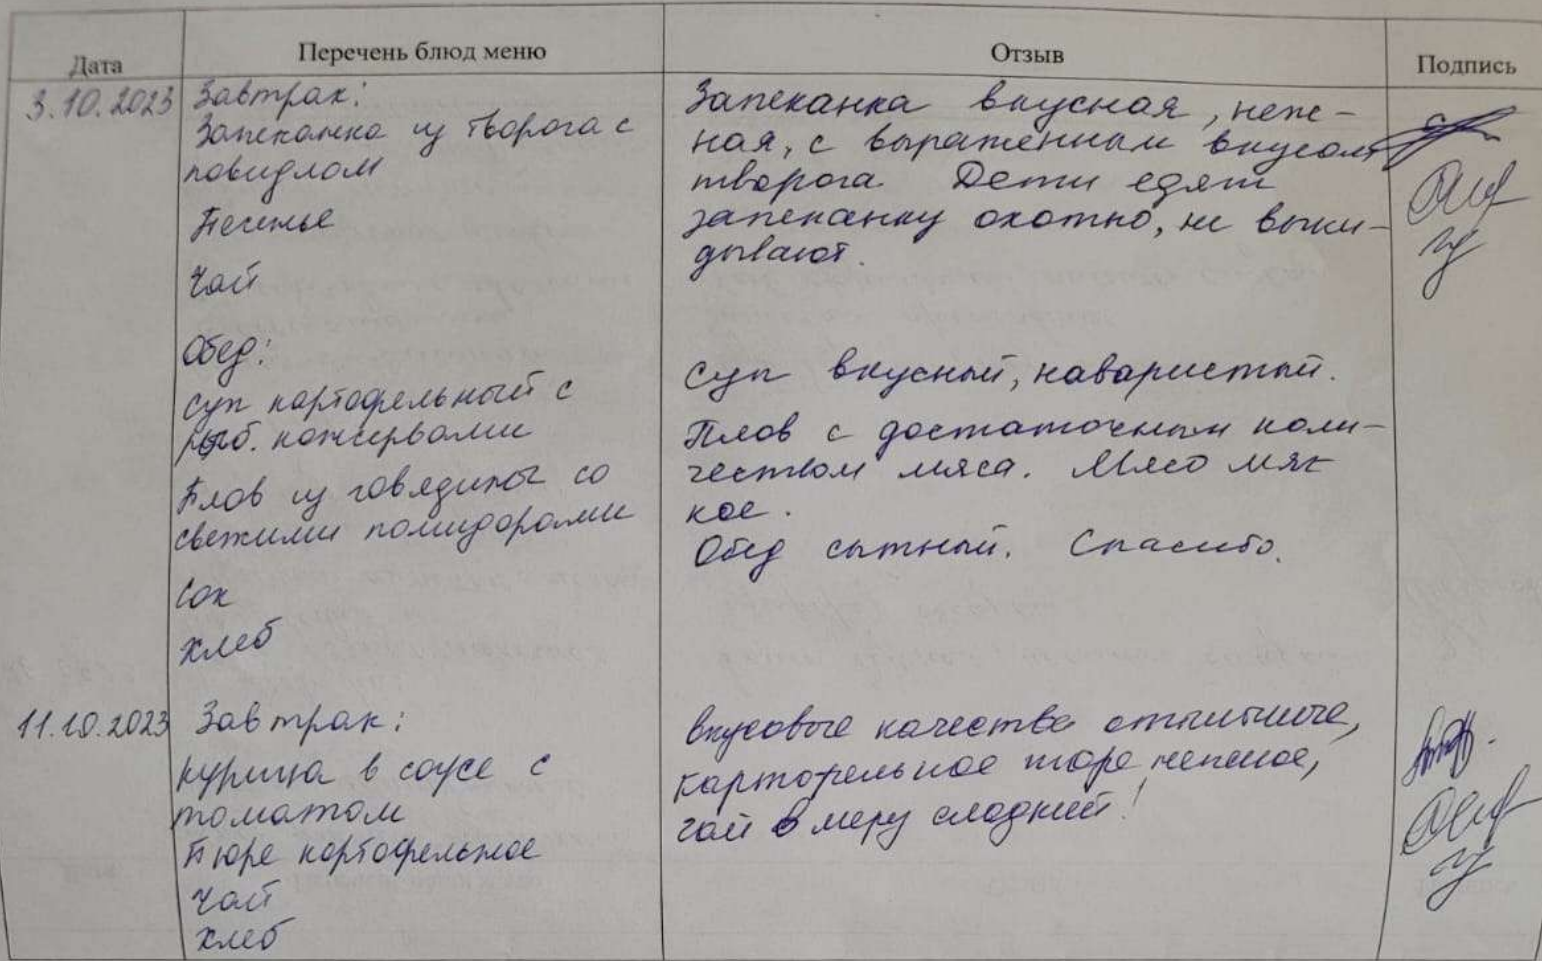 Дата
Перечень блюд меню
Отзыв
Подпись
3.10.2023
Завтрак:
Запеканка из творога с
повидлом
Печенье
Чай
Обед:
Суп картофельный с
рыб. консервами
Плов из говядины со
свежими помидорами
Сок
Хлеб
Запеканка вкусная, неж-
ная, с выраженным вкусом
творога Дети едят
запеканку охотно, не выки-
дывают.
Суп вкусный, наваристый.
Плов с достаточным коли-
чеством мяса. Мясо мяг
кое.
Обед сытный. Спасибо.
11.10.2023
Завтрак:
Курица в соусе с
томатом
Пюре картофельное
Чай
Хлеб
Вкусовые качества отличные,
картофельное пюре нежное,
чай в меру сладкий!